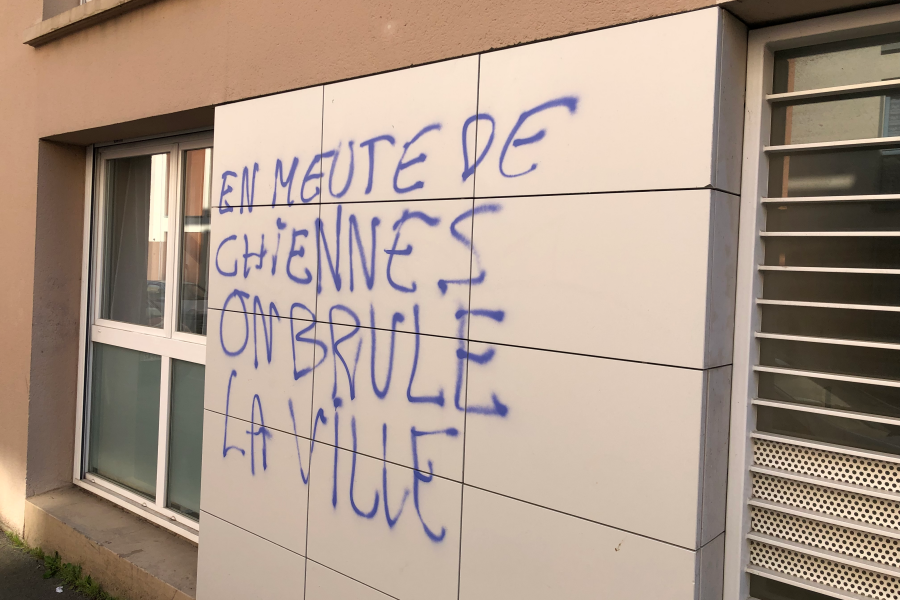 EN MEUTE DE
CHiENNES
ON BRULE
LA ViLLE